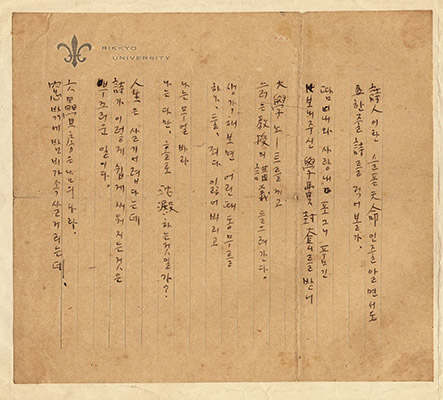 RIKKYO
UNIVERSITY
詩人이란 슬픈天命인줄알면서도
한줄詩를 적어볼가,
땀내와 사랑내 포그니 품긴
보내주신 學費封套를받어
大學노―트를 끼고
늙은敎授의 講義 들으려간다.
생각해보면 어린때동무를
하나, 둘, 죄다 잃어버리고
나는 무얼 바라
나는 다만, 홀로 沈澱하는것일가?
人生은 살기어렵다는데
詩가 이렇게 쉽게 씨워지는것은
부끄러운 일이다.
六疊房은남의나라.
窓밖에밤비가속살거리는데,